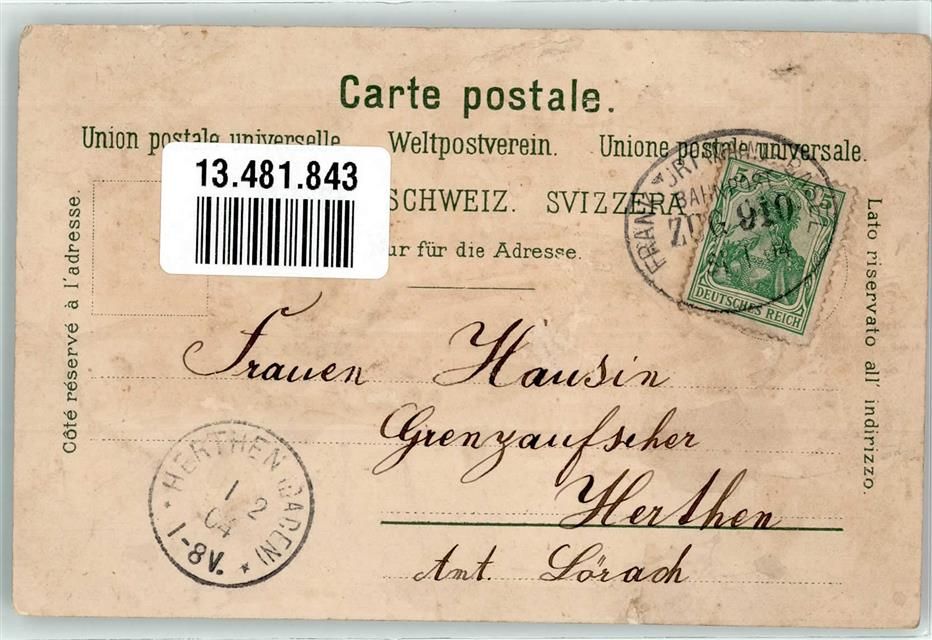 Carte postale.
Union postale universelle. Weltpostverein. Unione postale universale.
13.481.843
SCHWEIZ. SVIZZERA
ur für die Adresse.
Côté réservé à l'adresse.
Lato riservato all' indirizzo.
BAHNPOST
ZUG 910
DEUTSCHES REICH
Frauen Hausin
Grenzaufseher
Herthen
Amt. Lörach
* HERTHEN (BADEN) *
1 2
04
1-8V.